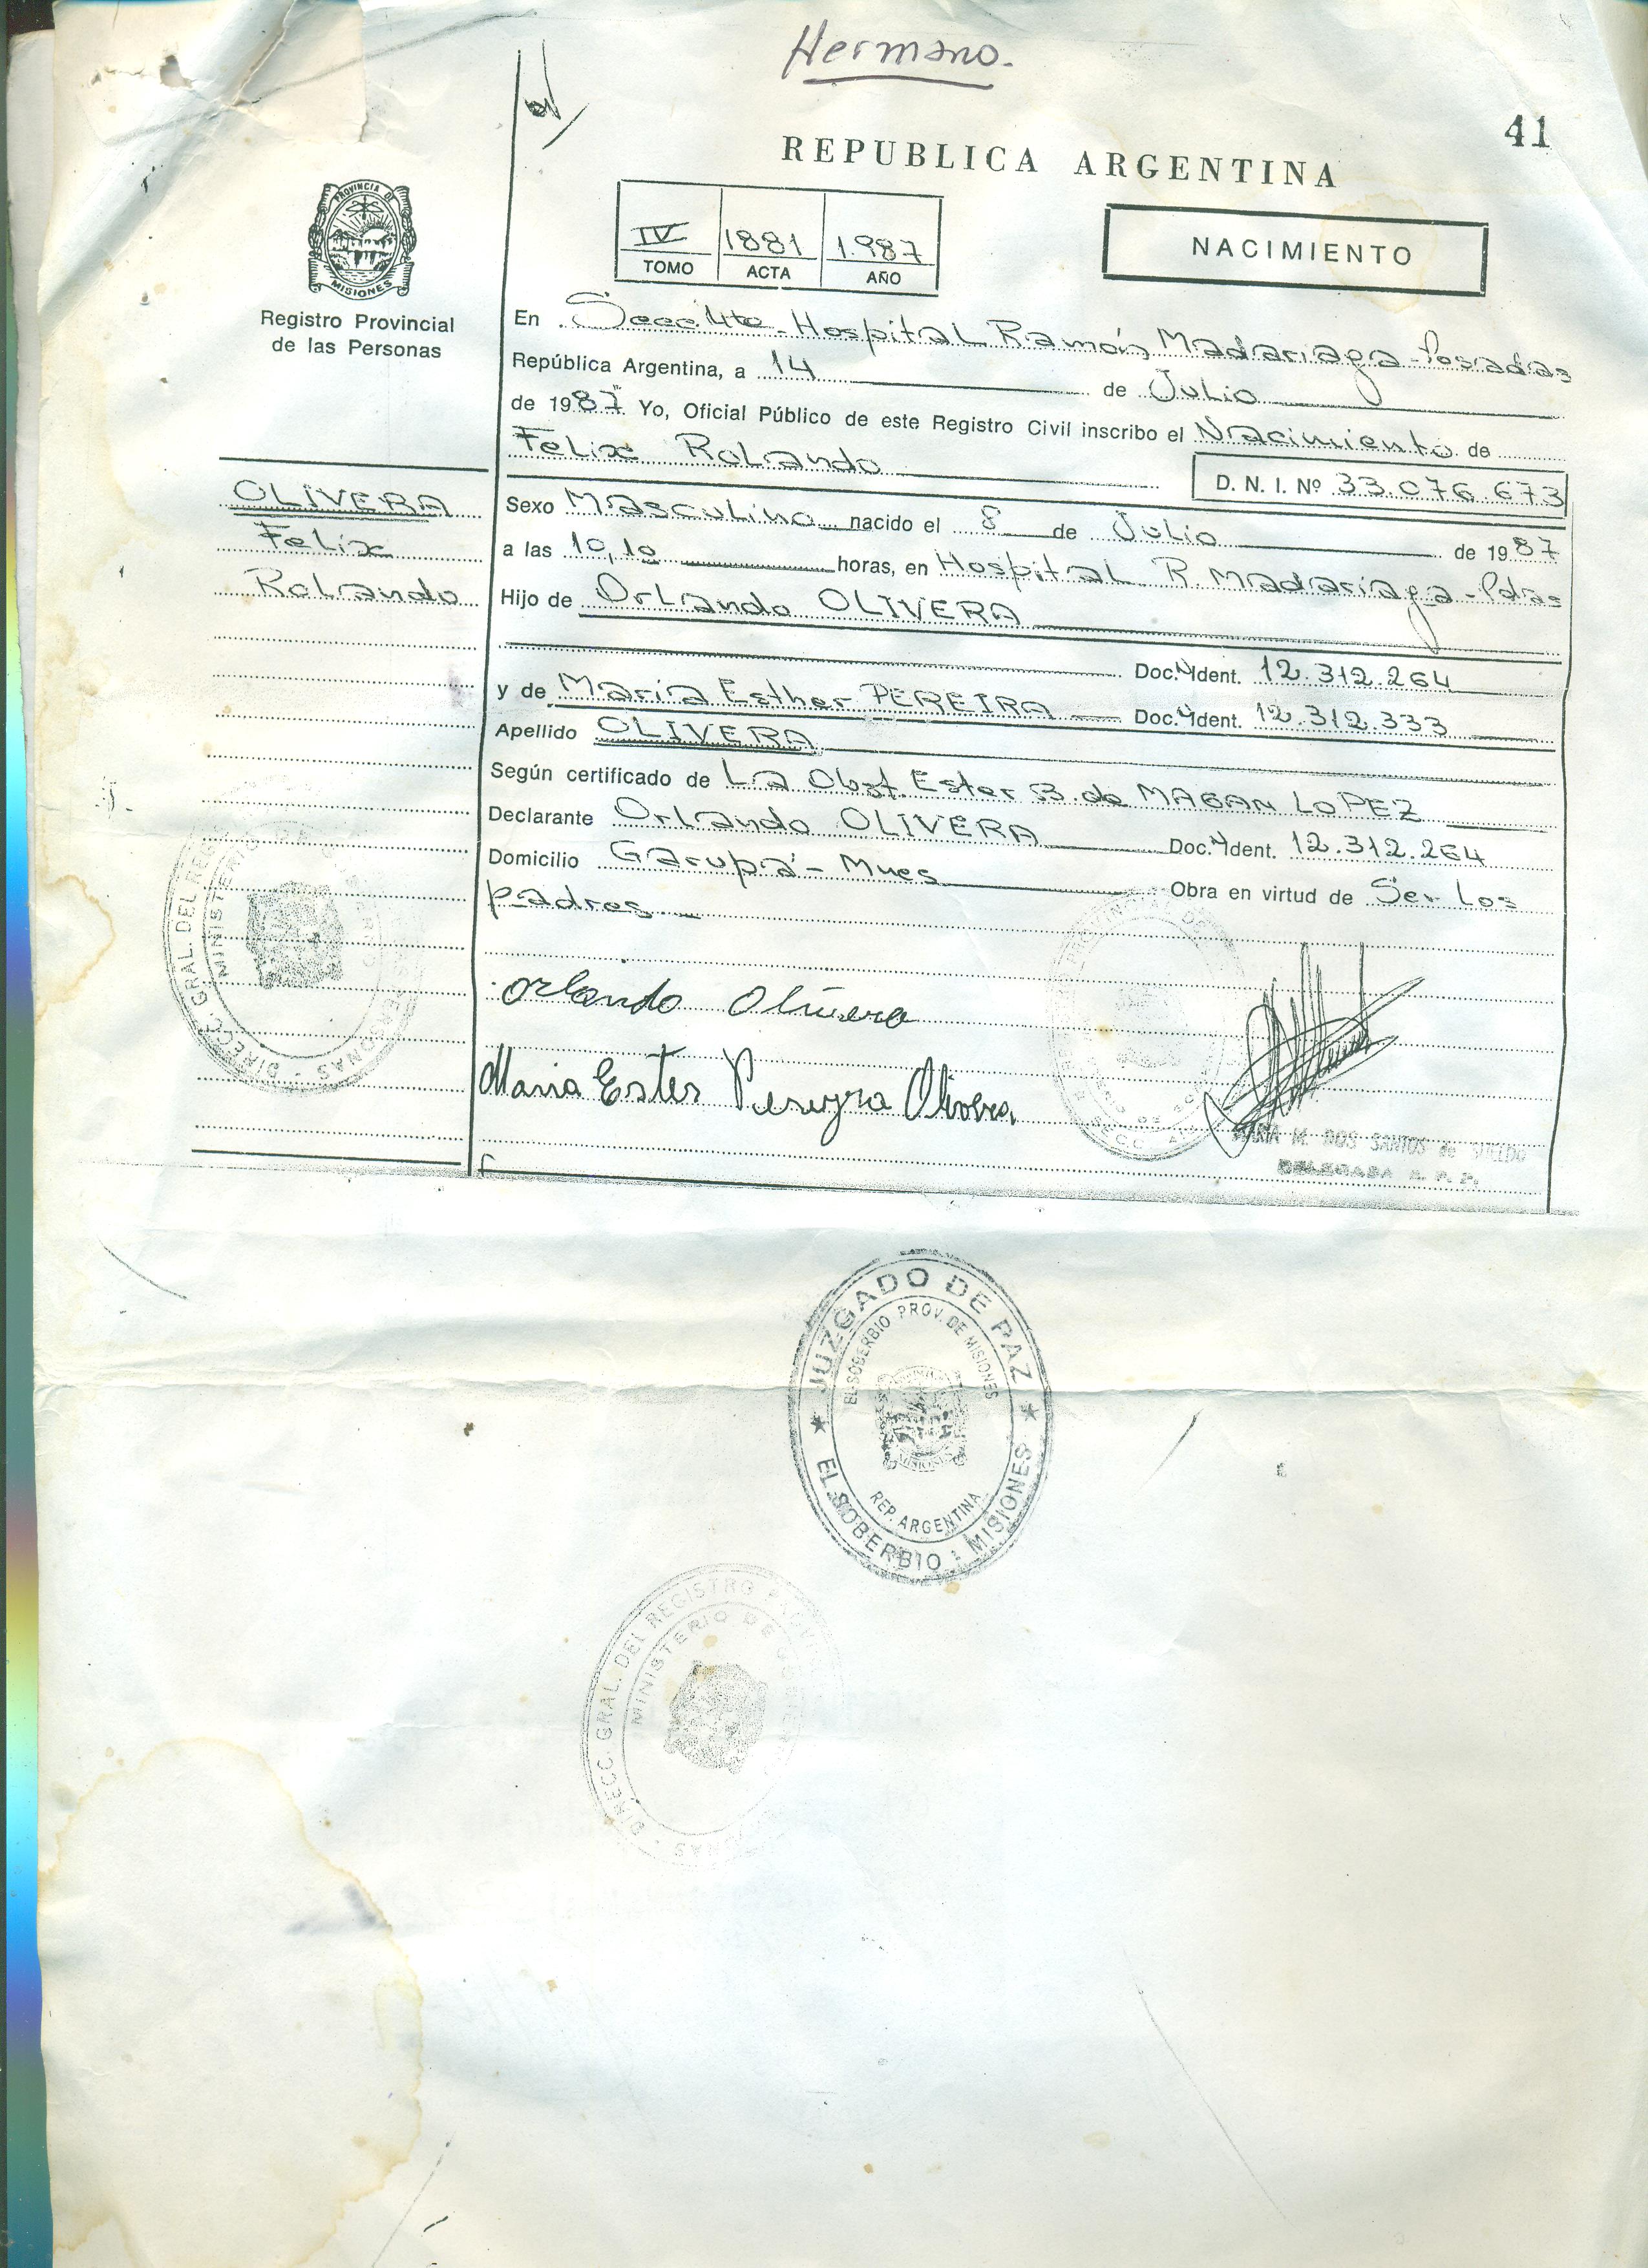 Hermano.
41
REPUBLICA ARGENTINA
PROVINCIA DE
MISIONES
Registro Provincial
de las Personas
IV 1881 1.987
TOMO ACTA AÑO
NACIMIENTO
En Hospital Ramón Madariaga - Posadas
República Argentina, a 14 de Julio
de 1987 Yo, Oficial Público de este Registro Civil inscribo el Nacimiento de
Felix Rolando
D. N. I. Nº 33.076.673
OLIVERA
Felix
Rolando
Sexo Masculino nacido el 8 de Julio de 1987
a las 10,10 horas, en Hospital R. Madariaga - Pdas
Hijo de Orlando OLIVERA
Doc. Ident. 12.312.264
y de María Esther PEREIRA Doc. Ident. 12.312.333
Apellido OLIVERA
Según certificado de La Obst. Ester B. de MAGAN LOPEZ
Declarante Orlando OLIVERA Doc. Ident. 12.312.264
Domicilio Garupá - Mnes Obra en virtud de Ser Los
padres
Orlando Olivera
Maria Ester Pereyra Olivera
MARIA M. DOS SANTOS de
DELEGADA R. P. P.
DIRECC. GRAL. DEL
MINISTERIO
JUZGADO DE PAZ
EL SOBERBIO PROV. DE MISIONES
MISIONES
REP. ARGENTINA
EL SOBERBIO : MISIONES
DIRECC. GRAL. DEL REGISTRO
MINISTERIO DE